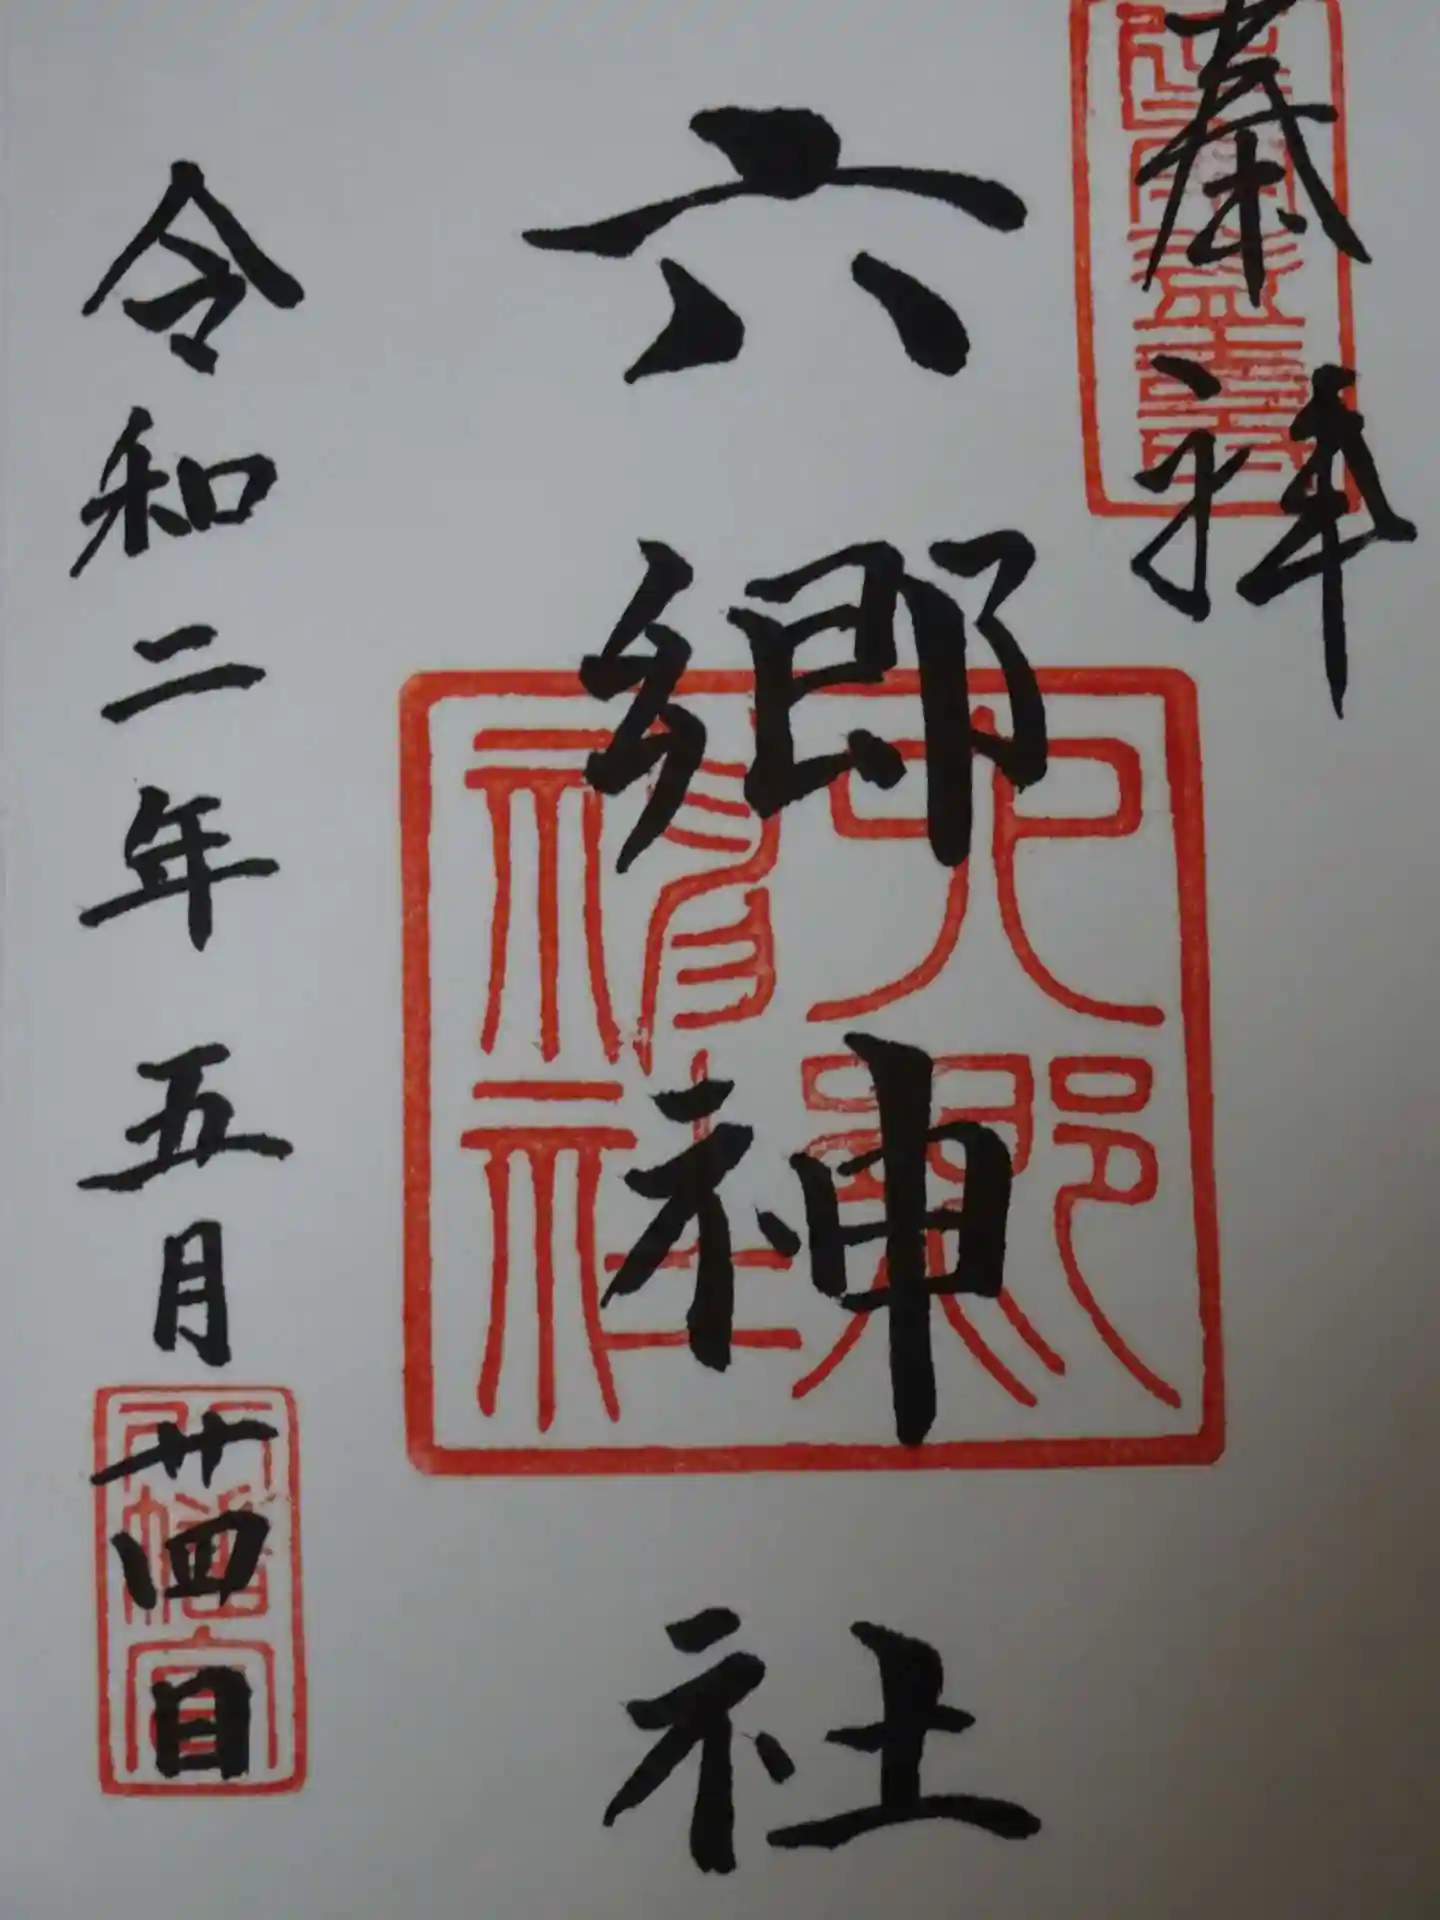 奉拝
六郷神社
六郷神社
令和二年五月廿四日
八幡宮